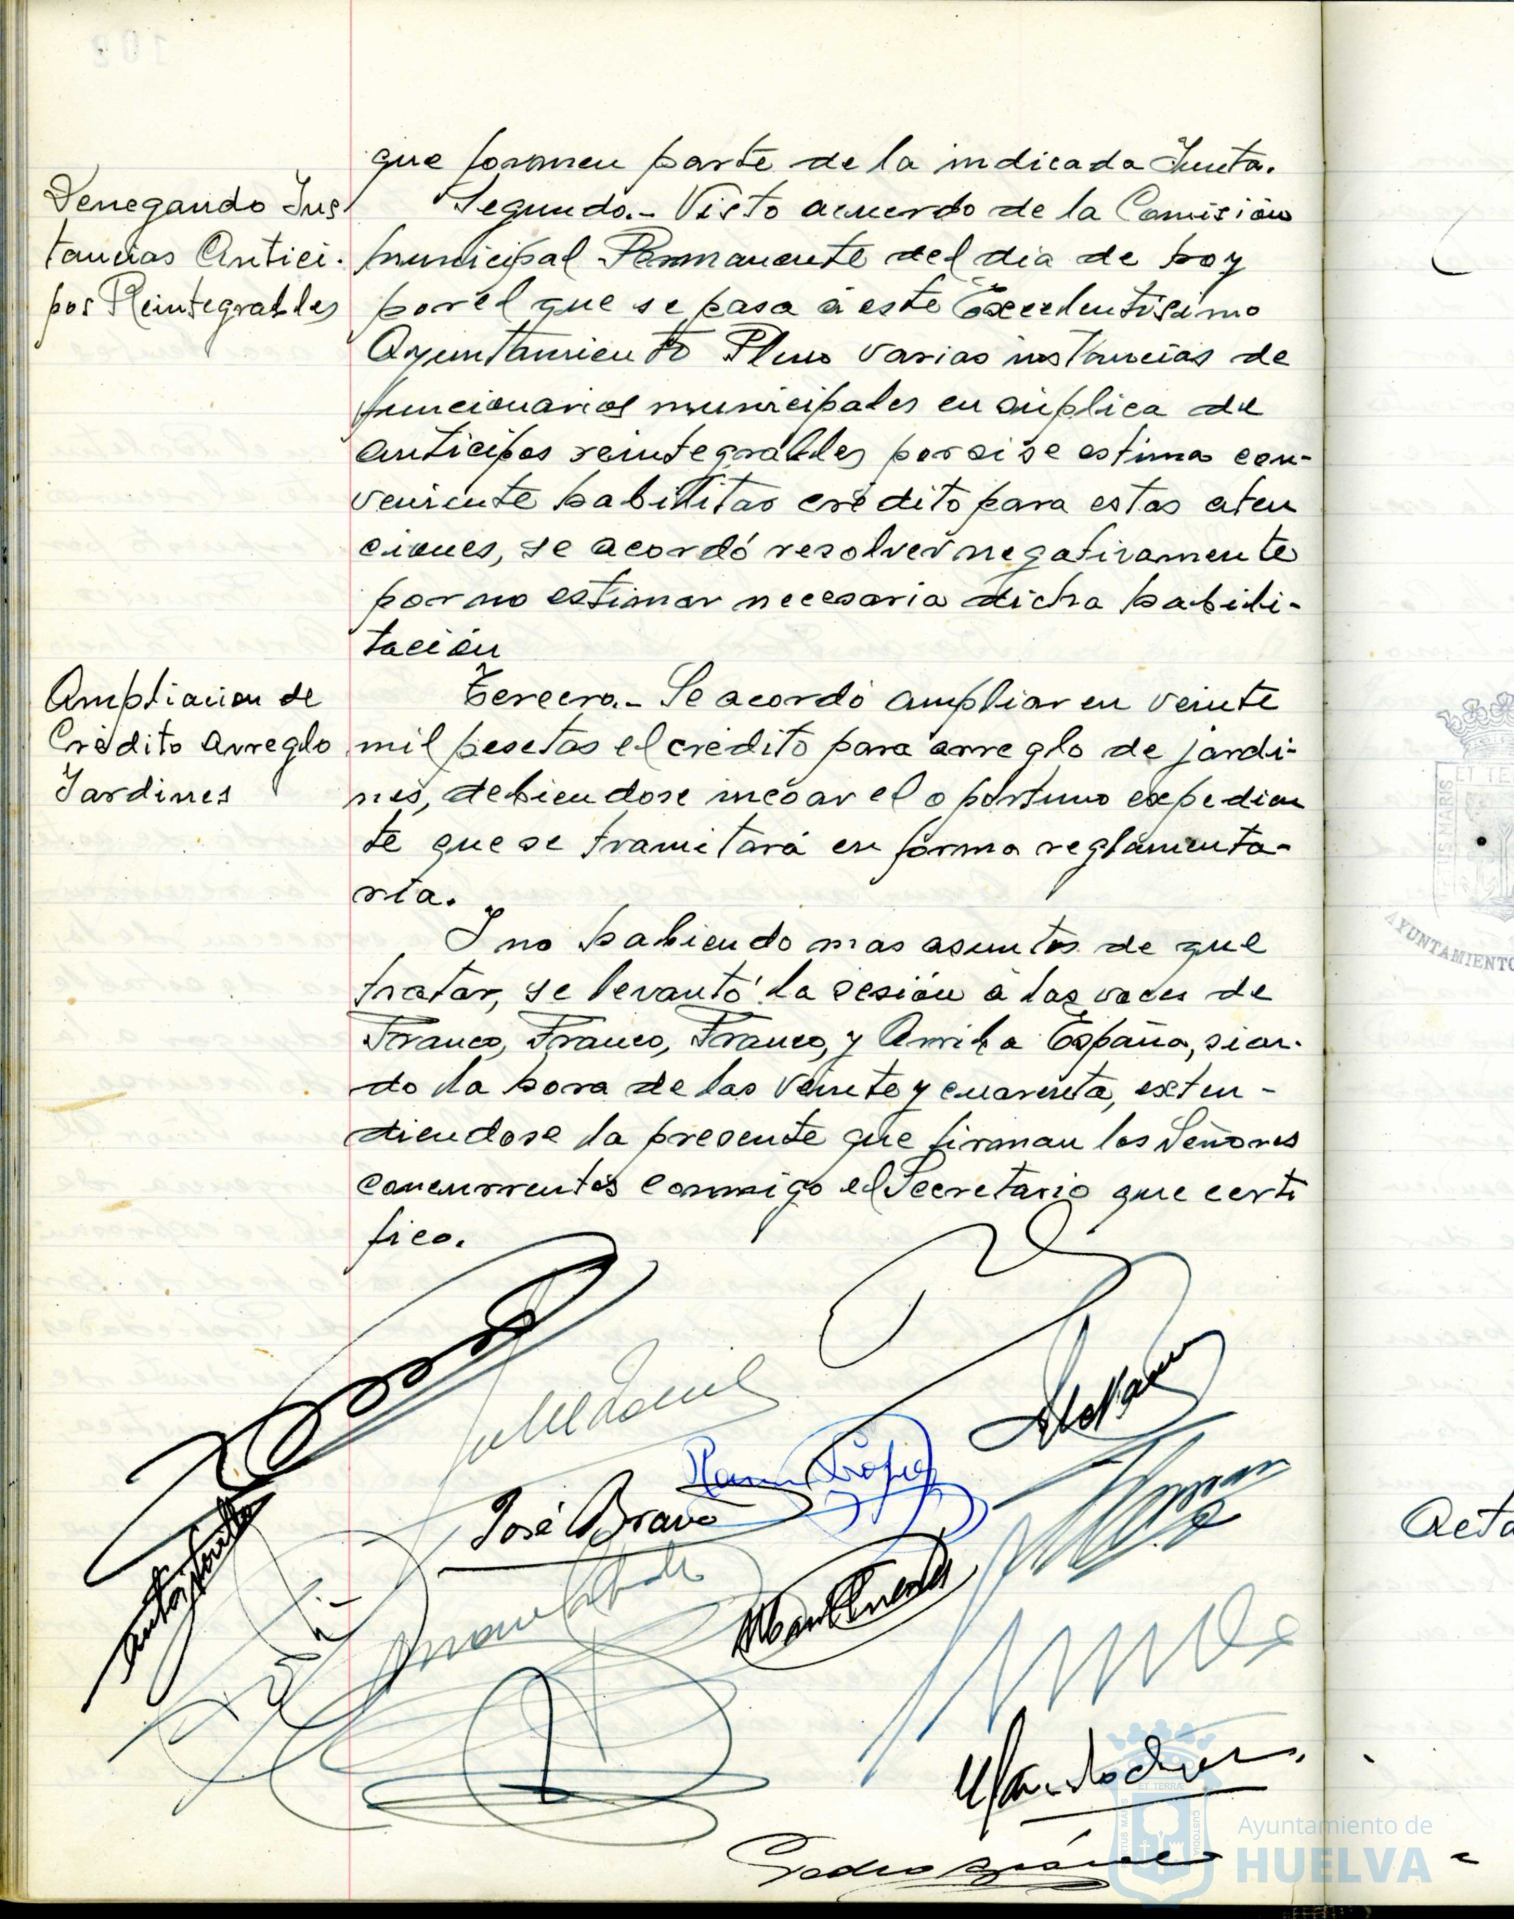 que formen parte de la indicada Junta.
Denegando Ins
tancias Antici-
pos Reintegrables
Segundo.- Visto acuerdo de la Comisión
municipal Permanente del día de hoy
por el que se pasa á este Excelentísimo
Ayuntamiento Pleno varias instancias de
funcionarios municipales en súplica de
anticipos reintegrables por si se estima con-
veniente habilitar crédito para estas aten
ciones, se acordó resolver negativamente
por no estimar necesaria dicha habili-
tación
Ampliacion de
Crédito arreglo
Jardines
Tercero.- Se acordó ampliar en veinte
mil pesetas el crédito para arreglo de jardi-
nes, debiendose incoar el oportuno expedien
te que se tramitará en forma reglamenta-
ria.
Y no habiendo mas asuntos de que
tratar, se levantó la sesión á las voces de
Franco, Franco, Franco, y Arriba España, sien-
do la hora de las veinte y cuarenta, exten-
diendose la presente que firman los Señores
concurrentes conmigo el Secretario que certi
fico.
José Bravo
Pedro
Acta
ET TERRÆ
CUSTODIA
AYUNTAMIENTO
Ayuntamiento de
HUELVA